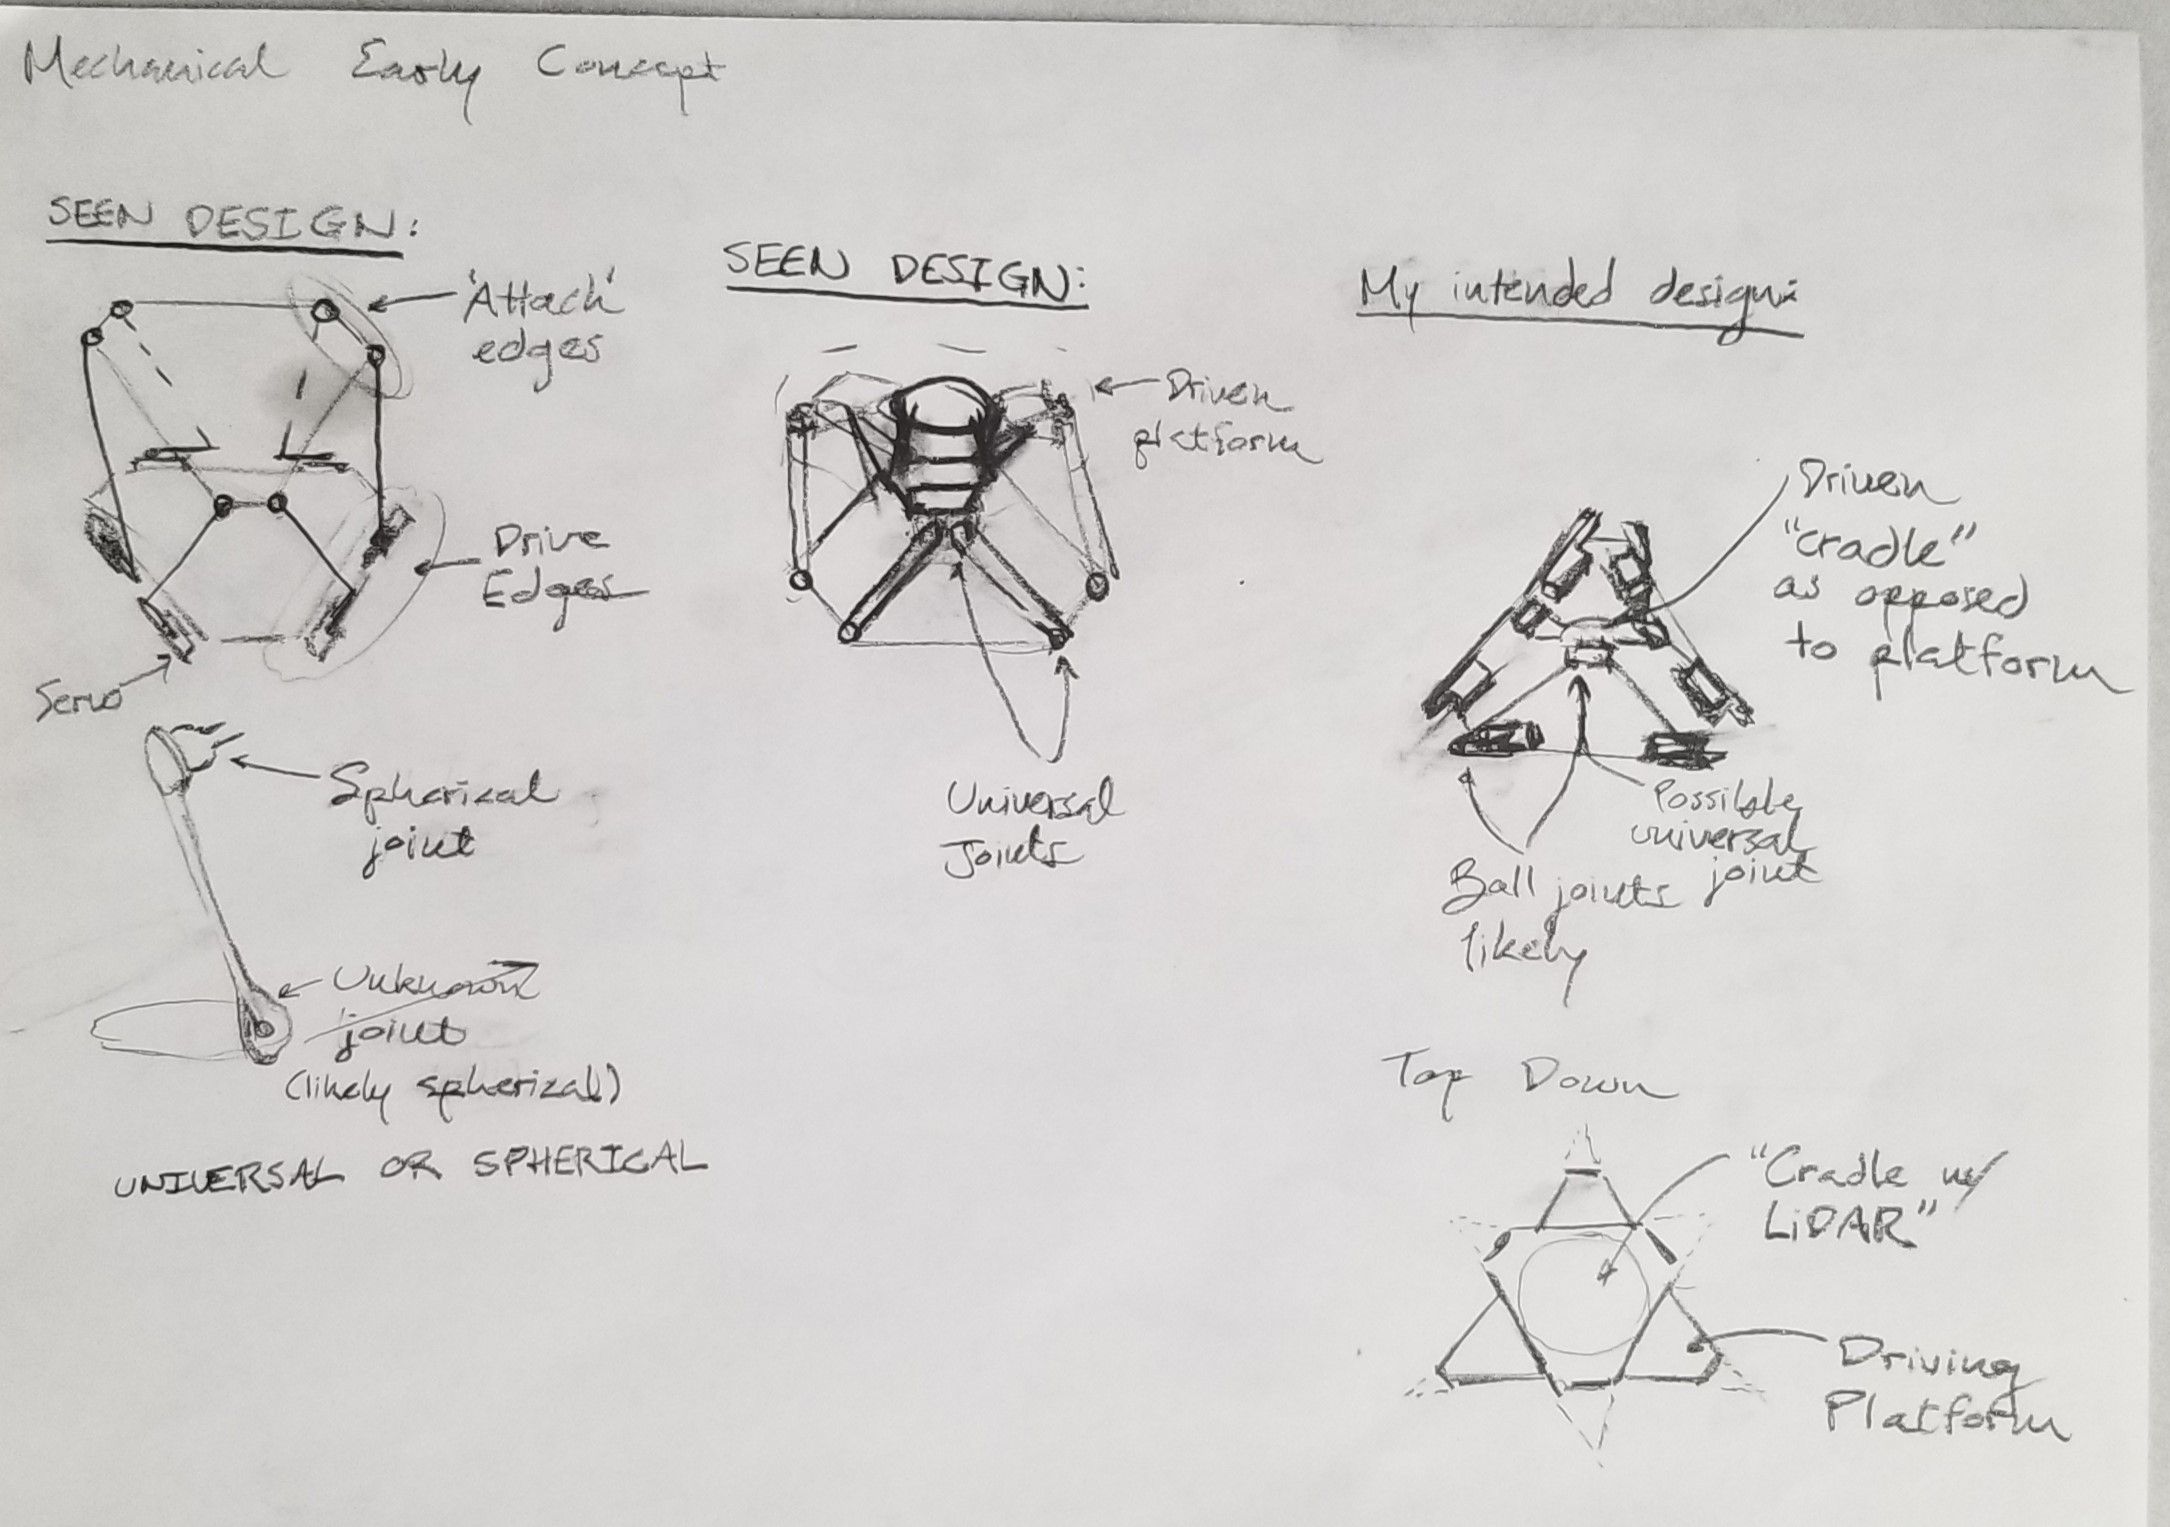 Mechanical Early Concept
SEEN DESIGN:
'Attach'
edges
Drive
Edges
Servo
Spherical
joint
Unknown
joint
(likely spherical)
UNIVERSAL OR SPHERICAL
SEEN DESIGN:
Driven
platform
Universal
Joints
My intended design:
Driven
"cradle"
as opposed
to platform
Possibly
universal
joint
Ball joints
likely
Top Down
"Cradle w/
LiDAR"
Driving
Platform